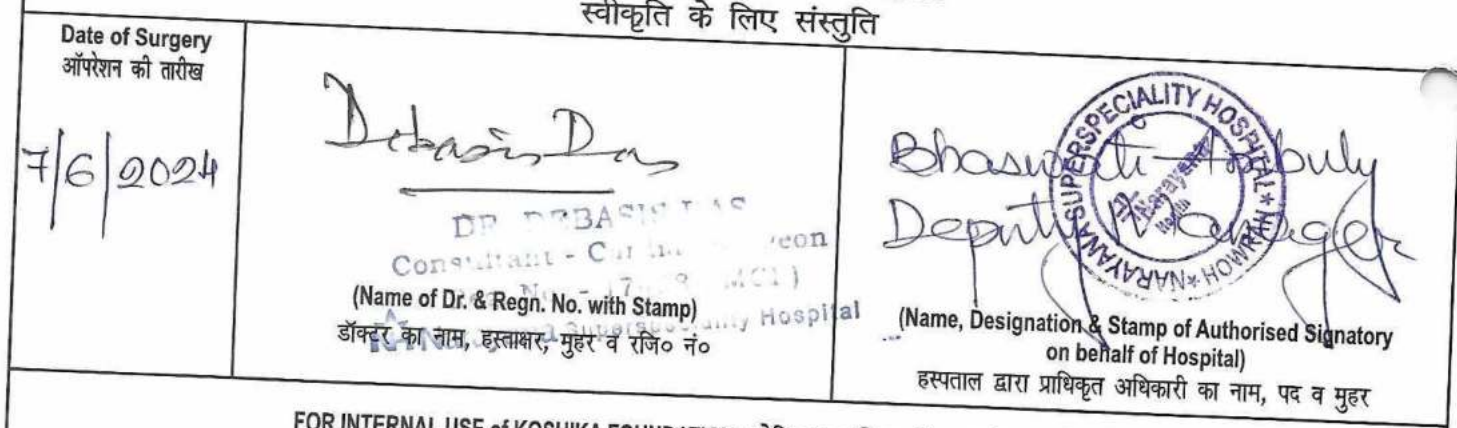 स्वीकृति के लिए संस्तुति
Date of Surgery
ऑपरेशन की तारीख
7/6/2024
Debasis Das
DR DEBASIS DAS
Consultant -
(Name of Dr. & Regn. No. with Stamp)
डॉक्टर का नाम, हस्ताक्षर, मुहर व रजि० नं०
Hospital
Bhaswati
Deputy Manager
NARAYANA SUPERSPECIALITY HOSPITAL * HOWRAH *
Narayana
Health
(Name, Designation & Stamp of Authorised Signatory
on behalf of Hospital)
हस्पताल द्वारा प्राधिकृत अधिकारी का नाम, पद व मुहर
FOR INTERNAL USE of KOSHIKA FOUNDATION